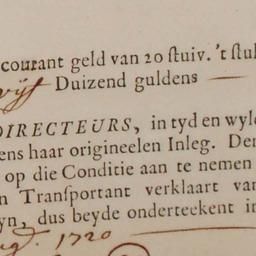 courant geld van 20 stuiv. 't stuk
vijf Duizend guldens
DIRECTEURS, in tyd en wyle
ens haar origineelen Inleg. Der
op die Conditie aan te nemen
n Transportant verklaart van
yn, dus beyde onderteekent in
1720